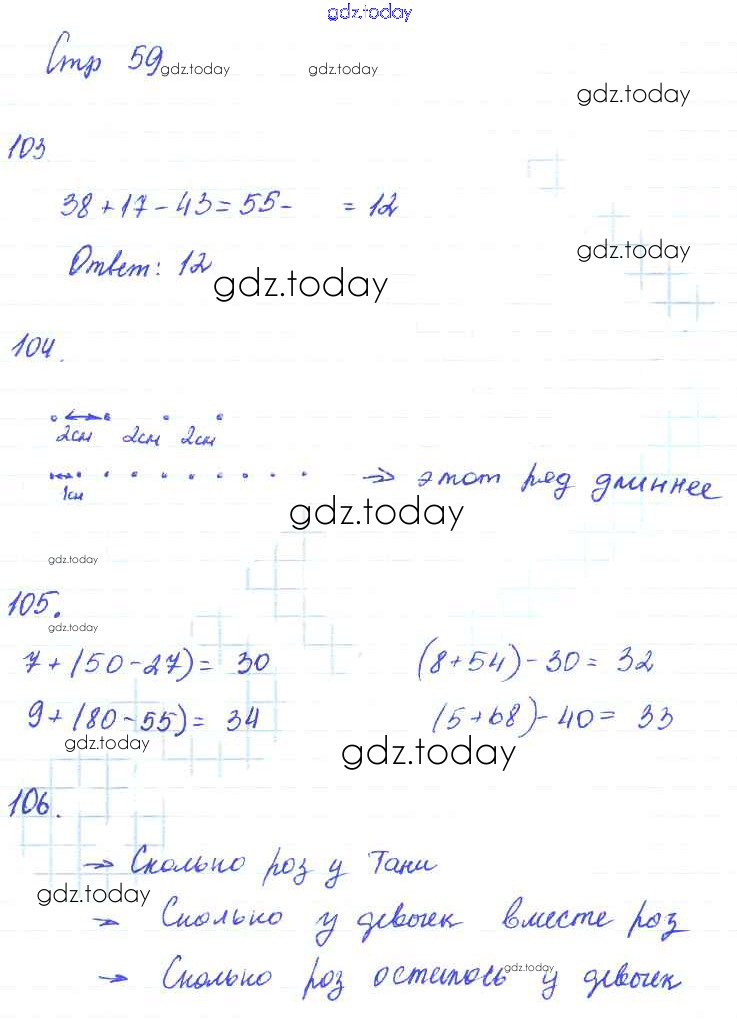 gdz.today
Стр 59
gdz.today gdz.today
gdz.today
103
38+17-43=55-   =12
Ответ: 12
gdz.today
gdz.today
104.
2см 2см 2см
1см
→ этот ряд длиннее
gdz.today
gdz.today
105.
gdz.today
7+(50-27)= 30 (8+54)-30= 32
9+(80-55)= 34 (5+68)-40= 33
gdz.today
gdz.today
106.
→ Сколько роз у Тани
gdz.today
→ Сколько у девочек вместе роз
→ Сколько роз осталось у девочек
gdz.today